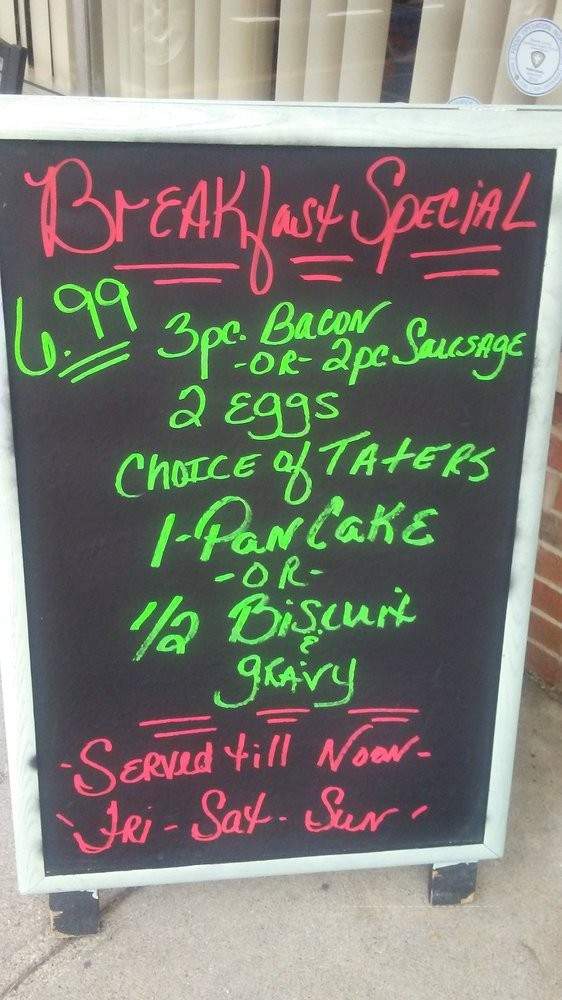 BrEAKfast SPECiAL
6.99 3pc. BACON
-OR- 2pc SAUSAGE
2 EGGS
CHOICE of TATERS
1-PANCAKE
-OR-
1/2 BiSCUit
&
GRAVY
-SERVED till NOON-
FRi - Sat - SUN